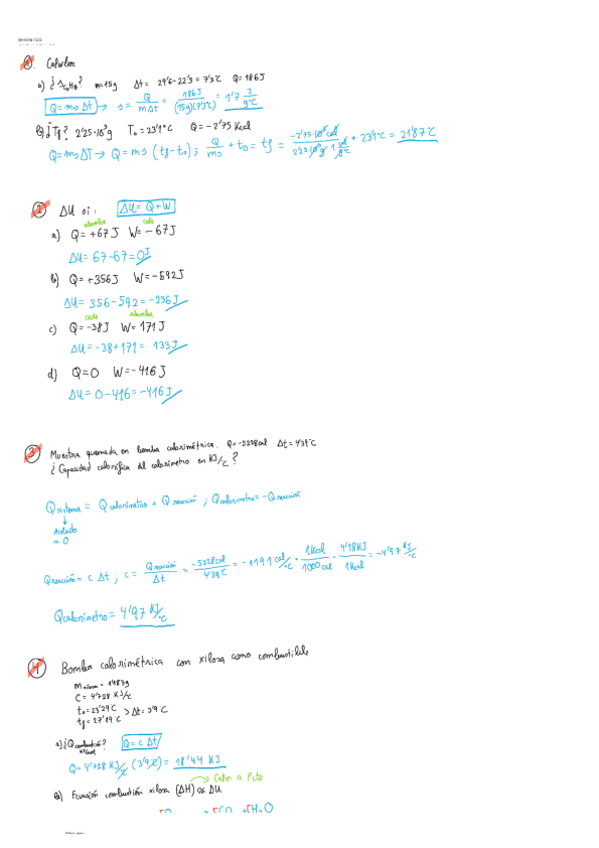 1. Calcular
a) ¿ m=15g Δt= 29'6-22'3 = 7'3°C Q=186J
Q=msΔt → s= Q/mΔt = 186J/(15g)(7'3°C) = 1'7 J/g°C
b) ¿Tf? 2'25·10³g T₀=23'1°C Q=-2'75 Kcal
Q=msΔT → Q=ms(tf-t₀); Q/ms + t₀ = tf = -2'75·10³cal/2'25·10³g·1 cal/g°C + 23'1°C = 21'87°C
2. ΔU si: ΔU=Q+W
absorbe cede
a) Q=+67J W=-67J
ΔU=67-67=0J
b) Q=+356J W=-592J
ΔU=356-592=-236J
cede absorbe
c) Q=-38J W=171J
ΔU=-38+171= 133J
d) Q=0 W=-416J
ΔU=0-416=-416J
3. Muestra quemada en bomba calorimétrica. Q=-5228cal Δt=4'39°C
¿Capacidad calorífica del calorímetro en KJ/°C?
Qsistema = Qcalorímetro + Qreacción ; Qcalorímetro=-Qreacción
↓
Aislado
=0
Qreacción=cΔt ; c= Qreacción/Δt = -5228cal/4'39°C = -1191 cal/°C · 1Kcal/1000cal · 4'18KJ/1Kcal = -4'97 KJ/°C
Qcalorímetro= 4'97 KJ/°C
4. Bomba calorimétrica con xilosa como combustible
C= 4'728 KJ/°C
t₀=23'29°C > Δt= 3'9°C
tf=27'19°C
a) ¿Qcombustión? Q=cΔt
Q=4'728 KJ/°C (3'9°C)= 18'44 KJ
→ Calor a P cte
b) Ecuación combustión xilosa (ΔH) ≈ ΔU